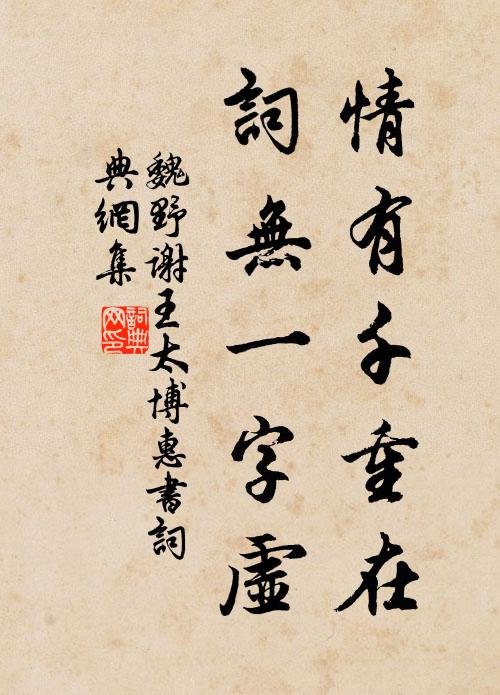 情有千重在
詞無一字虛
魏野谢王太博惠書詞
典網集
詞典网印